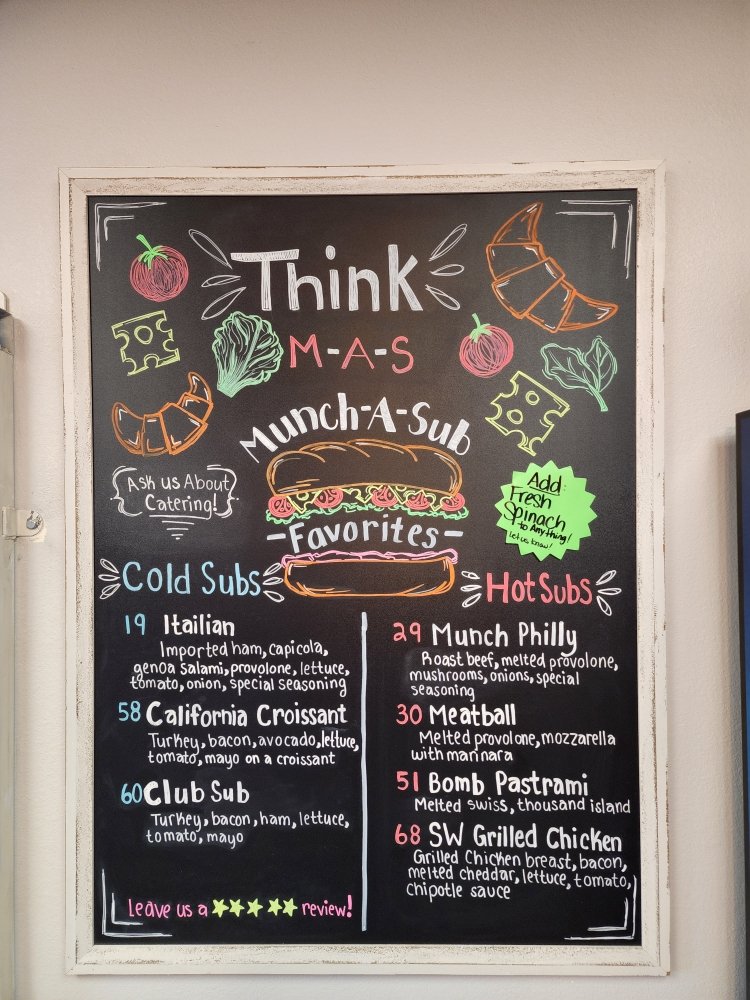 Think
M-A-S
Munch-A-Sub
Ask us About
Catering!
Add
Fresh
Spinach
to Anything!
let us know!
-Favorites-
Cold Subs
19 Itailian
Imported ham, capicola,
genoa salami, provolone, lettuce,
tomato, onion, special seasoning
58 California Croissant
Turkey, bacon, avocado, lettuce,
tomato, mayo on a croissant
60 Club Sub
Turkey, bacon, ham, lettuce,
tomato, mayo
Leave us a ★★★★★ review!
Hot Subs
29 Munch Philly
Roast beef, melted provolone,
mushrooms, onions, special
seasoning
30 Meatball
Melted provolone, mozzarella
with marinara
51 Bomb Pastrami
Melted swiss, thousand island
68 SW Grilled Chicken
Grilled Chicken breast, bacon,
melted cheddar, lettuce, tomato,
chipotle sauce